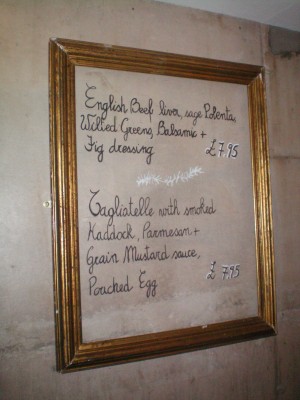 English Beef liver, sage Polenta,
Wilted Greens, Balsamic +
Fig dressing £7.95
Tagliatelle with smoked
Haddock, Parmesan +
Grain Mustard sauce,
Poached Egg £7.95